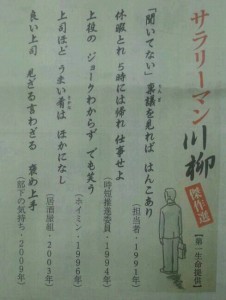 サラリーマン川柳
傑作選
【第一生命提供】
「聞いてない」稟議を見れば はんこあり
りんぎ
(担当者・1991年)
休暇とれ 5時には帰れ 仕事せよ
(時短推進委員・1994年)
上役の ジョークわからず でも笑う
(ホイミン・1996年)
上司ほど うまい肴は ほかになし
(居酒屋組・2003年)
良い上司 見ざる言わざる 褒め上手
(部下の気持ち・2009年)